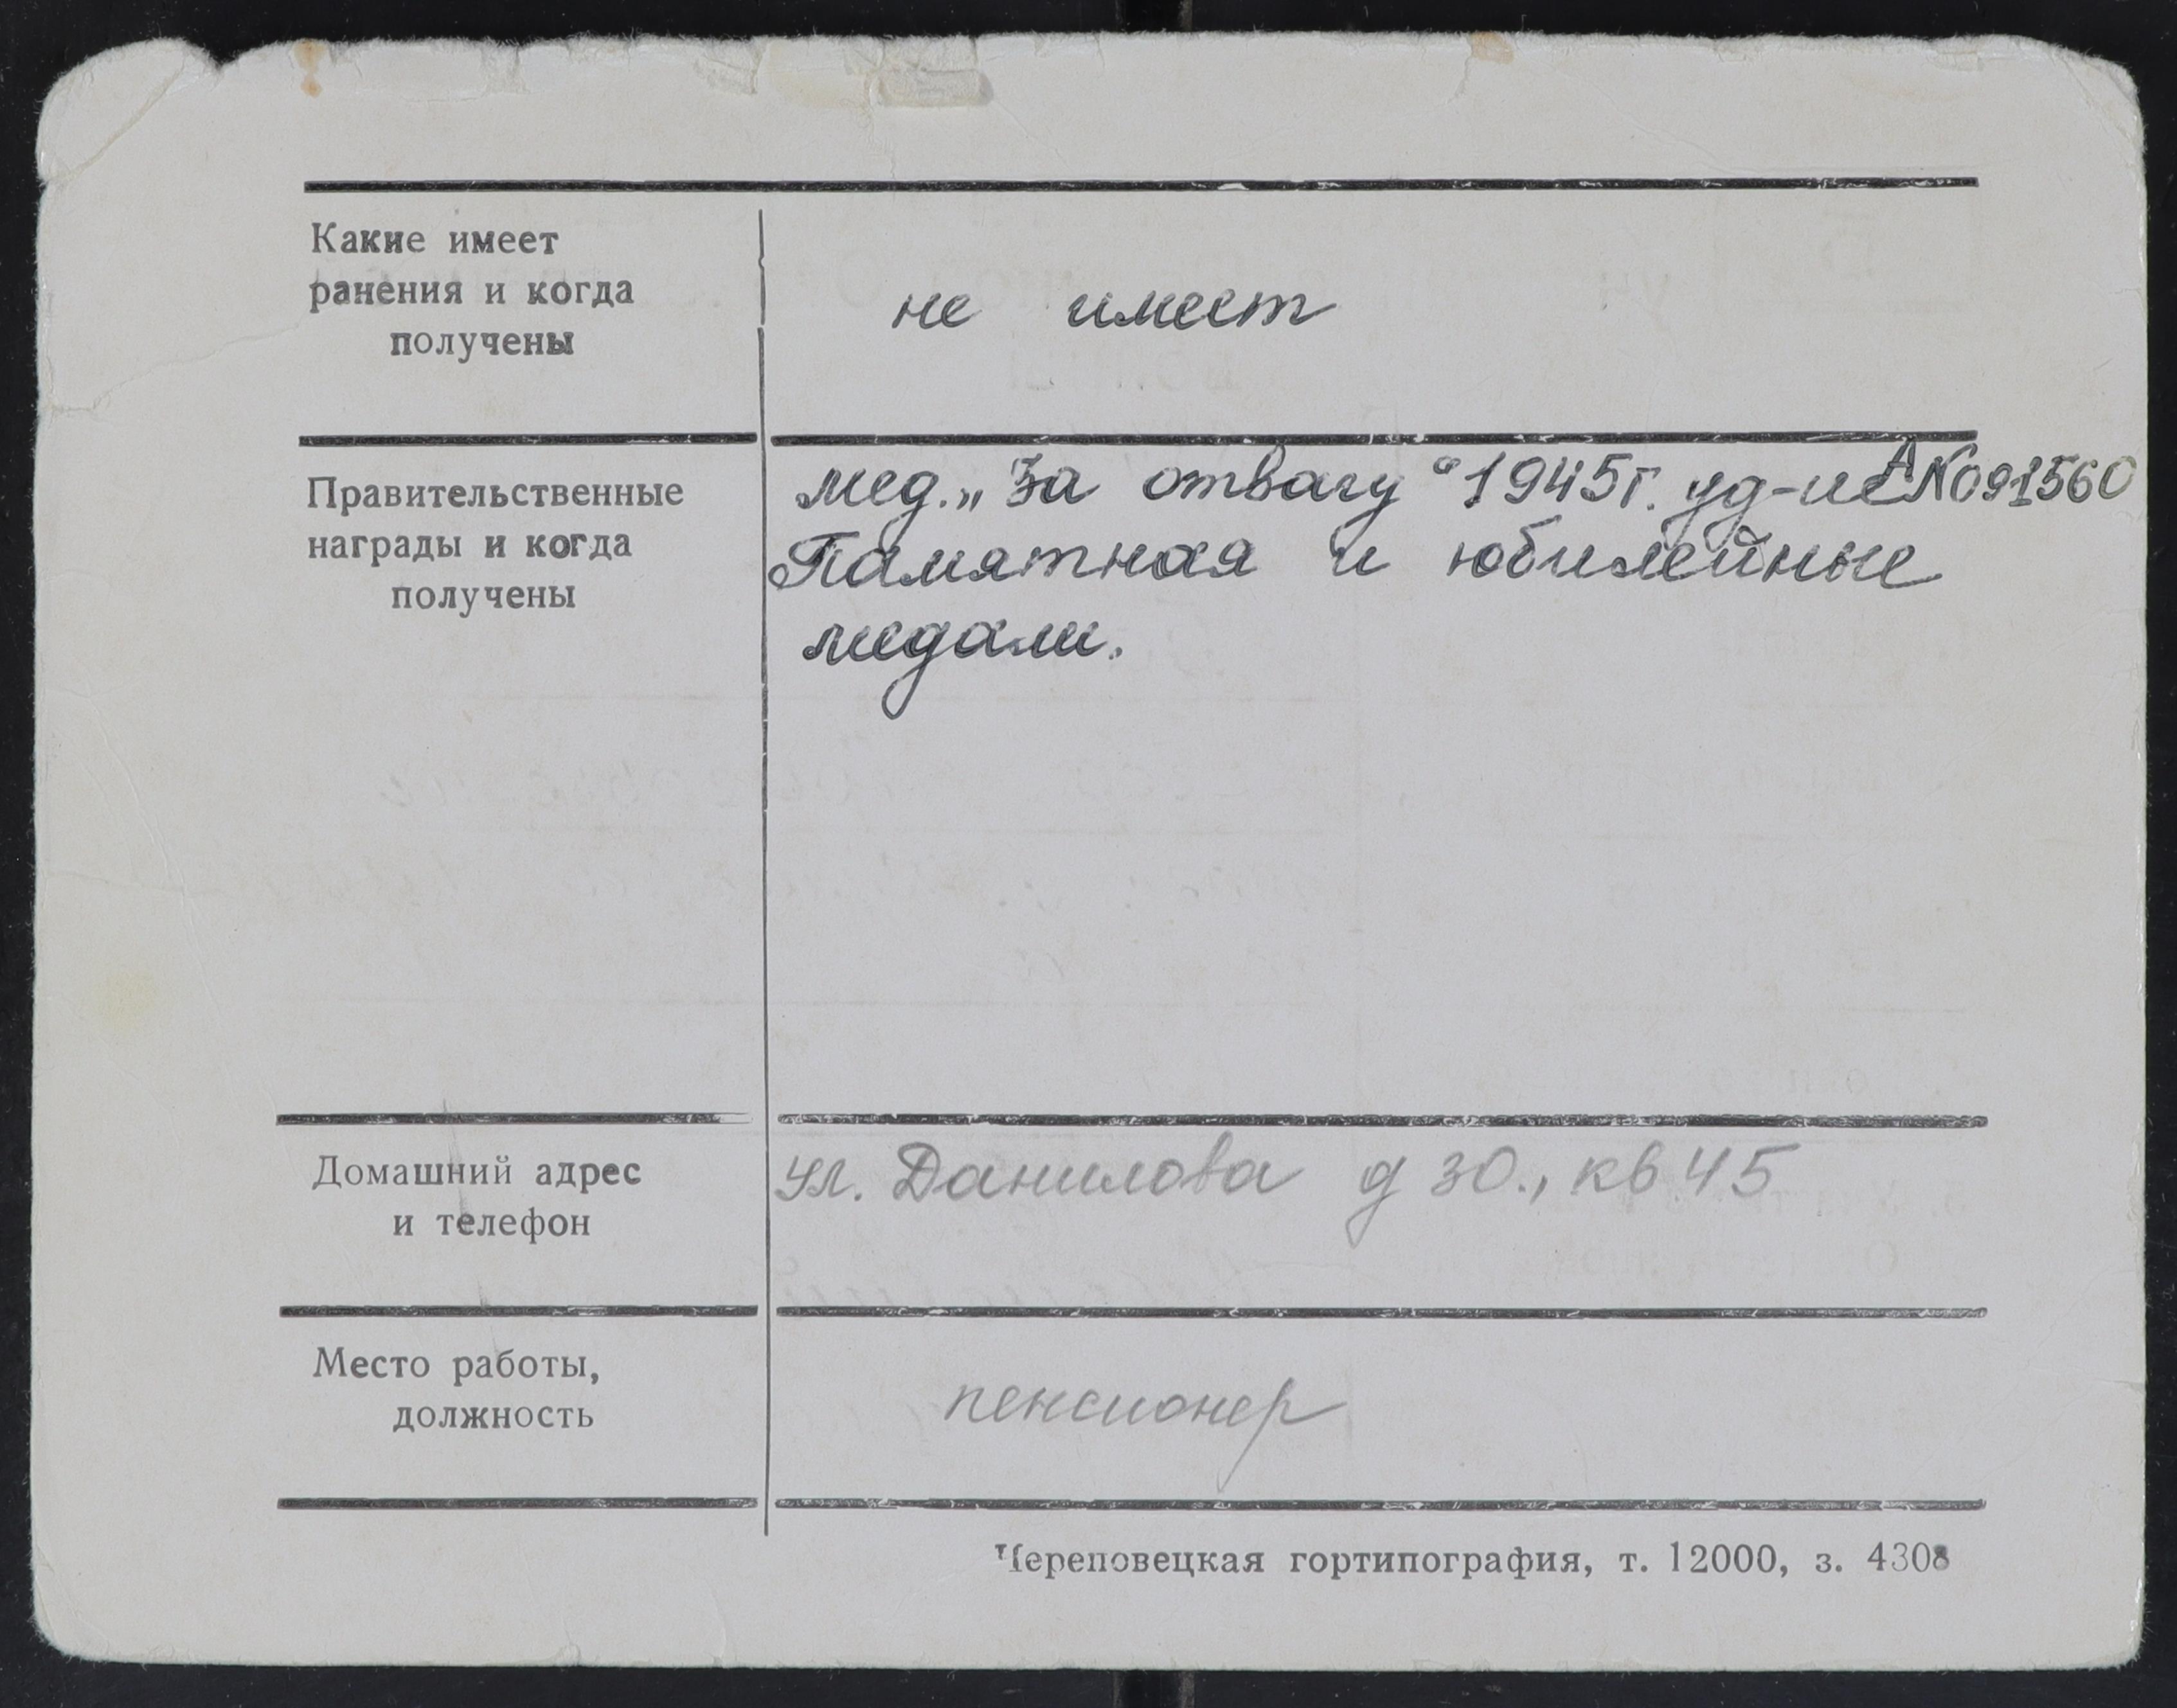 Какие имеет
ранения и когда
получены
не имеет
Правительственные
награды и когда
получены
мед. „За отвагу“ 1945г. уд-ие А№091560
Памятная и юбилейные
медали.
Домашний адрес
и телефон
ул. Данилова д 30., кв 45
Место работы,
должность
пенсионер
Череповецкая гортипография, т. 12000, з. 4308